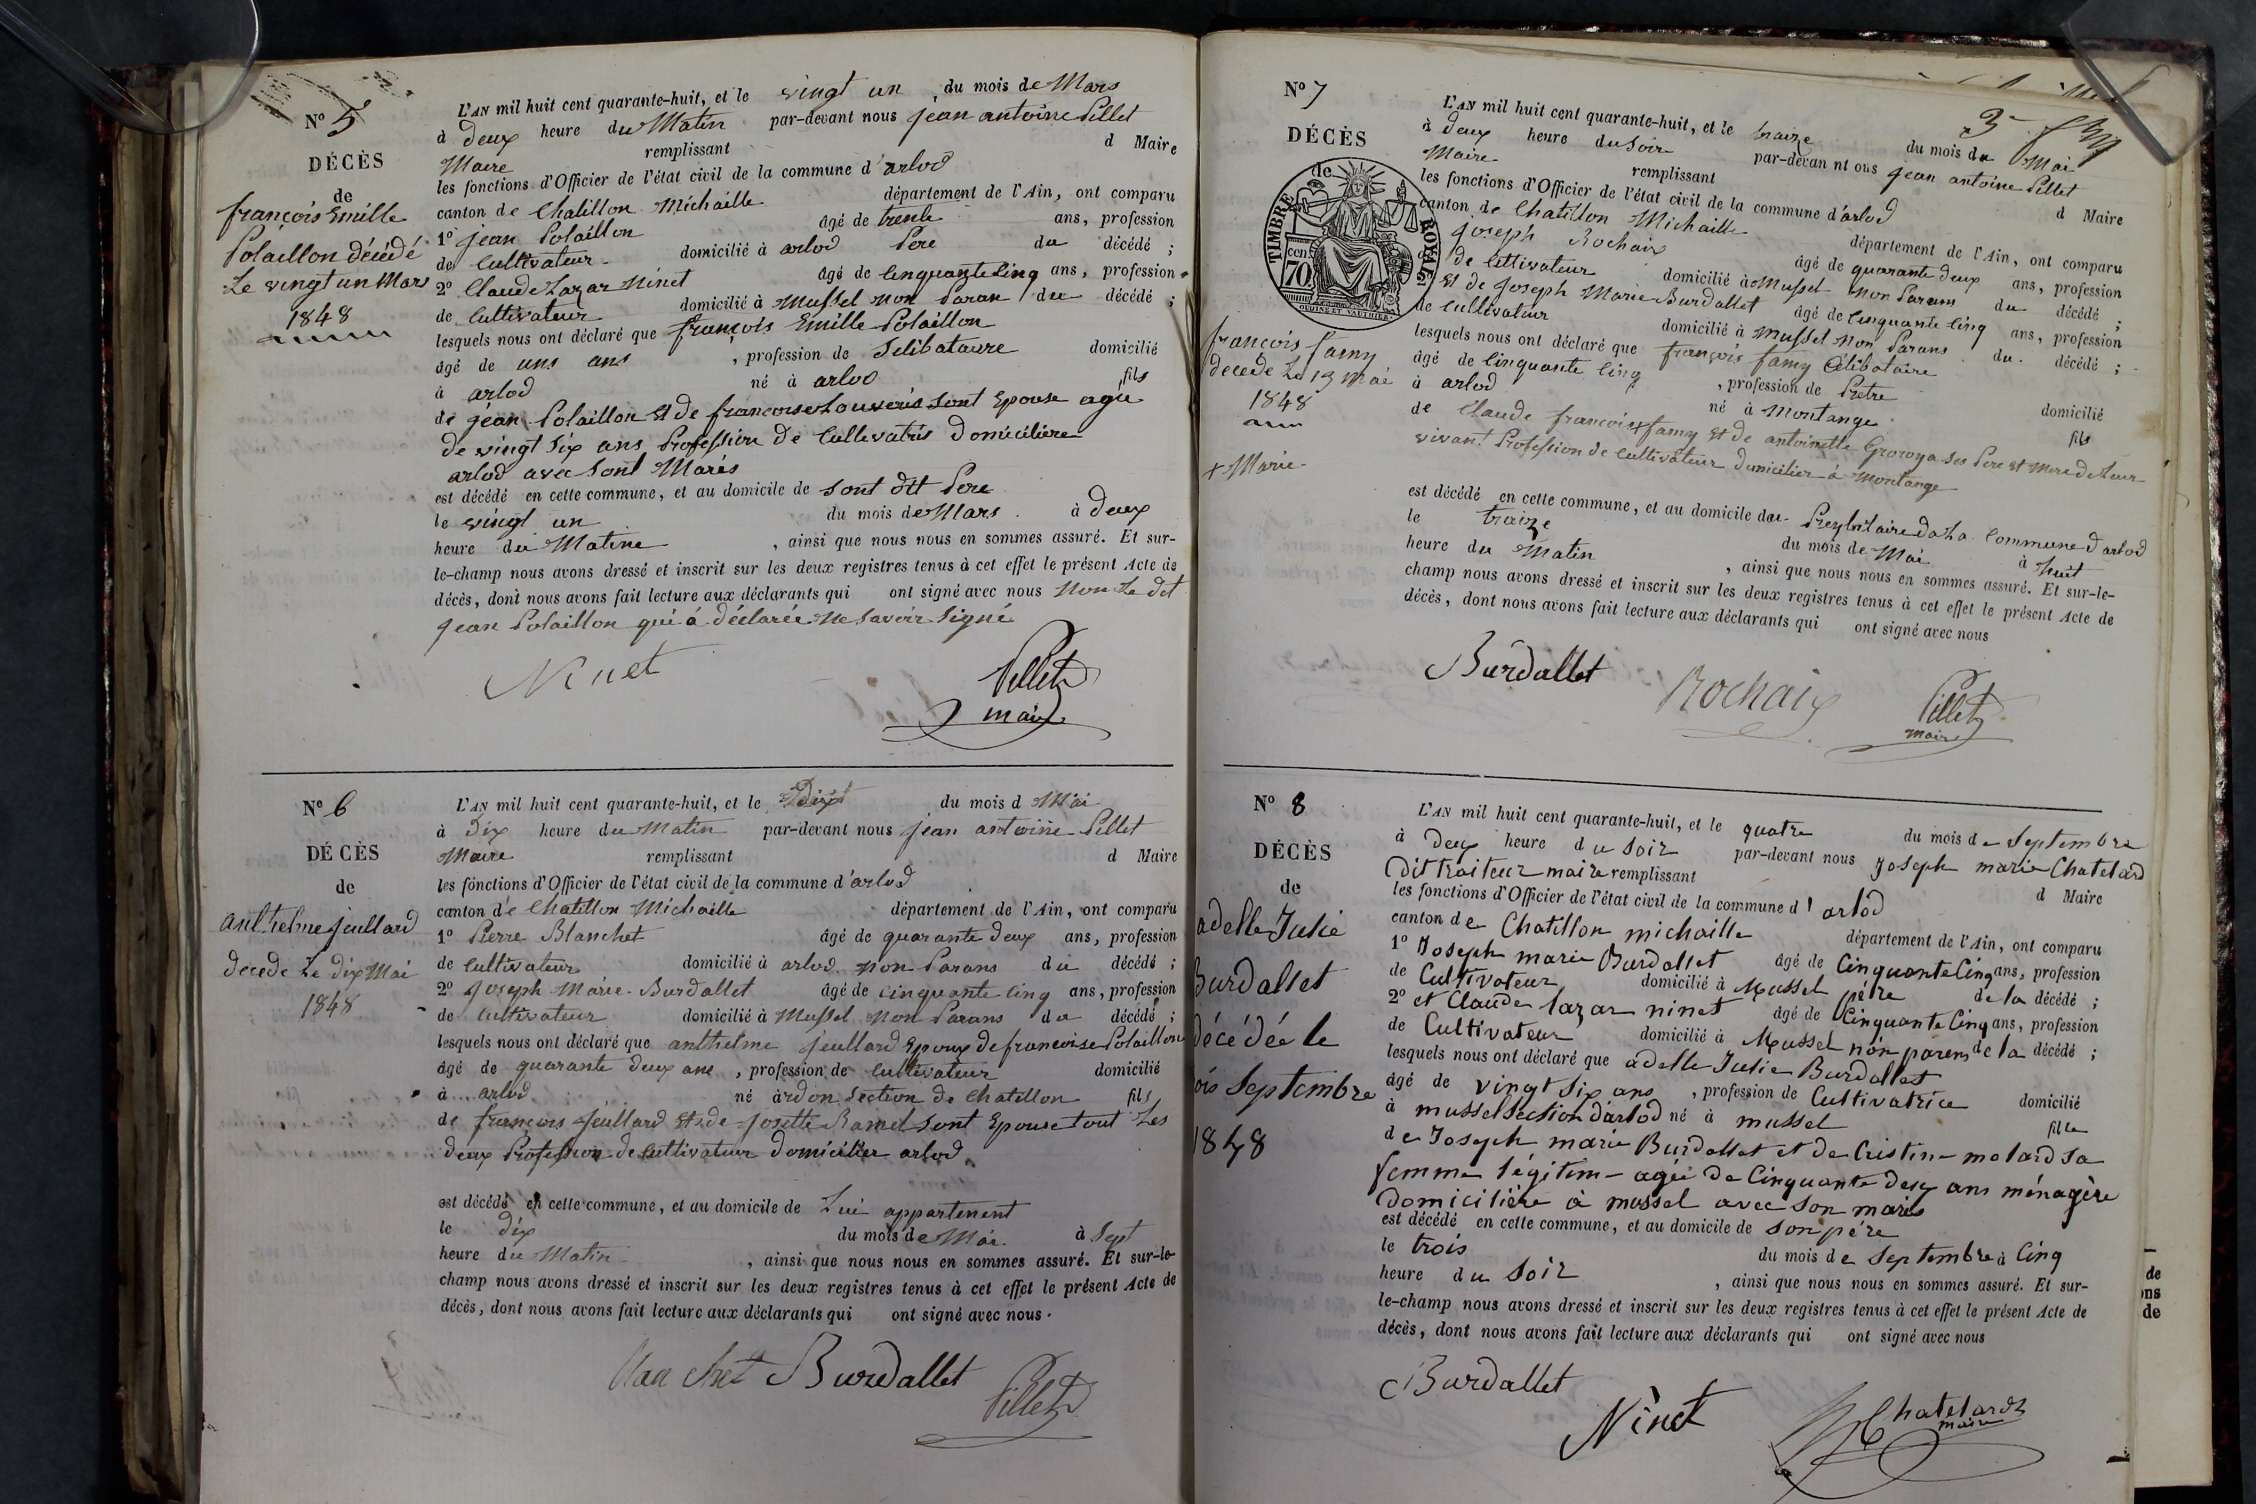 N° 5
DÉCÈS
de
françois Emille
Polaillon décédé
Le vingt un Mars
1848
L'AN mil huit cent quarante-huit, et le vingt un du mois de Mars
à deux heure du Matin par-devant nous jean antoine Pillet
Maire remplissant d Maire
les fonctions d'Officier de l'état civil de la commune d'arlod
canton de Chatillon Michaille département de l'Ain, ont comparu
1° jean Polaillon âgé de trente ans, profession
de Cultivateur domicilié à arlod Pere du décédé ;
2° Claude Lazar Ninet âgé de Cinquante Cinq ans, profession
de Cultivateur domicilié à Mussel non Paran du décédé ;
lesquels nous ont déclaré que françois Emille Polaillon
âgé de uns ans , profession de Selibataire domicilié
à arlod né à arlod fils
de jean Polaillon Et de francoise Louverie sont Epouse agü
de vingt six ans Profession de Cultevatris Domicilière
arlod avec sont Marés
est décédé en cette commune, et au domicile de sont dit Pere
le vingt un du mois de Mars à deux
heure du Matine , ainsi que nous nous en sommes assuré. Et sur-
le-champ nous avons dressé et inscrit sur les deux registres tenus à cet effet le présent Acte de
décès, dont nous avons fait lecture aux déclarants qui ont signé avec nous Non Le dit
jean Polaillon qui á déclarée ne savoir signé
Ninet
Pillet
maire
N° 6
DÉCÈS
de
anthelme jeullard
décédé Le dix Mai
1848
L'AN mil huit cent quarante-huit, et le Dix du mois d Mai
à Dix heure du Matin par-devant nous jean antoine Pillet
Maire remplissant d Maire
les fonctions d'Officier de l'état civil de la commune d'arlod
canton de Chatillon Michaille département de l'Ain, ont comparu
1° Pierre Blanchet âgé de quarante deux ans, profession
de Cultivateur domicilié à arlod non Parans du décédé ;
2° joseph Marie Burdallet âgé de cinquante cinq ans, profession
de Cultivateur domicilié à Mussel non Parans du décédé ;
lesquels nous ont déclaré que anthelme jeullard Epoux de francoise Polaillon
âgé de quarante deux ane , profession de Cultivateur domicilié
à arlod né à rdon Section de Chatillon fils
de françois jeullard Et de josette Ramel sont Epouse tout Les
deux Profession de Cultivateur Domicilier arlod
est décédé en cette commune, et au domicile de Lui appartenent
le dix du mois de Mai à Sept
heure du Matin , ainsi que nous nous en sommes assuré. Et sur-le-
champ nous avons dressé et inscrit sur les deux registres tenus à cet effet le présent Acte de
décès, dont nous avons fait lecture aux déclarants qui ont signé avec nous.
Blanchet Burdallet Pillet
N° 7
DÉCÈS
de
TIMBRE ROYAL
70 cen
françois famy
décédé Le 13 Mai
1848
+ Marie
L'AN mil huit cent quarante-huit, et le traize du mois du Mai
à deux heure du soir par-devan nt ous jean antoine Pillet
Maire remplissant d Maire
les fonctions d'Officier de l'état civil de la commune d'arlod
canton de Chatillon Michaille département de l'Ain, ont comparu
joseph Rochaix âgé de quarante deux ans, profession
de Cultivateur domicilié à Mussel non Parans du décédé ;
Et de joseph Marie Burdallet âgé de Cinquante Cinq ans, profession
de Cultivateur domicilié à Mussel non Parans du décédé ;
lesquels nous ont déclaré que françois famy Célibataire
âgé de Cinquante Cinq , profession de Prêtre domicilié
à arlod né à Montange fils
de Claude françois + famy Et de antoinette Ses Pere Et Mere de Leur
vivant Profession de Cultivateur Domicilier á Montange
est décédé en cette commune, et au domicile du Presbitaire de La Commune D'arlod
le traize du mois de Mai à huit
heure du Matin , ainsi que nous nous en sommes assuré. Et sur-le-
champ nous avons dressé et inscrit sur les deux registres tenus à cet effet le présent Acte de
décès, dont nous avons fait lecture aux déclarants qui ont signé avec nous
Burdallet Rochaix Pillet
maire
N° 8
DÉCÈS
de
adelle Julie
Burdallet
décédée le
ois Septembre
1848
L'AN mil huit cent quarante-huit, et le quatre du mois de Septembre
à Deux heure du soir par-devant nous Joseph marie Chatelard
Dit traiteur maire remplissant d Maire
les fonctions d'Officier de l'état civil de la commune d'arlod
canton de Chatillon michaille département de l'Ain, ont comparu
1° Joseph marie Burdallet âgé de Cinquante Cinq ans, profession
de Cultivateur domicilié à Mussel pére de la décédé ;
2° et Claude lazar ninet âgé de Cinquante Cinq ans, profession
de Cultivateur domicilié à Mussel nón parens de la décédé ;
lesquels nous ont déclaré que adelle Julie Burdallet
âgé de vingt six ans , profession de Cultivatrice domicilié
à mussel section d'arlod né à mussel fille
de Joseph marie Burdallet et de Cristine molard sa
femme légitime agée de Cinquante deux ans ménagère
domiciliére à mussel avec son maris
est décédé en cette commune, et au domicile de son pére
le trois du mois de Septembre à Cinq
heure du soir , ainsi que nous nous en sommes assuré. Et sur-
le-champ nous avons dressé et inscrit sur les deux registres tenus à cet effet le présent Acte de
décès, dont nous avons fait lecture aux déclarants qui ont signé avec nous
Burdallet
Ninet
Chatelard
maire
de
ons
de